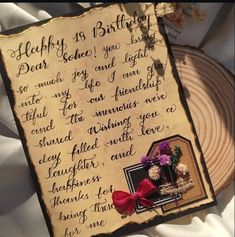 Happy 18 Birthday
Dear Sohee! you bring
so much joy and light
into my life I am gra
tiful for our friendship
and the memories we've
shared Wishing you a
day filled with love,
laughter, and
happiness
Thanks for
being there
for me